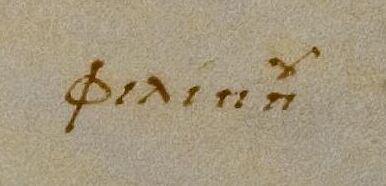 φιλιππȣ